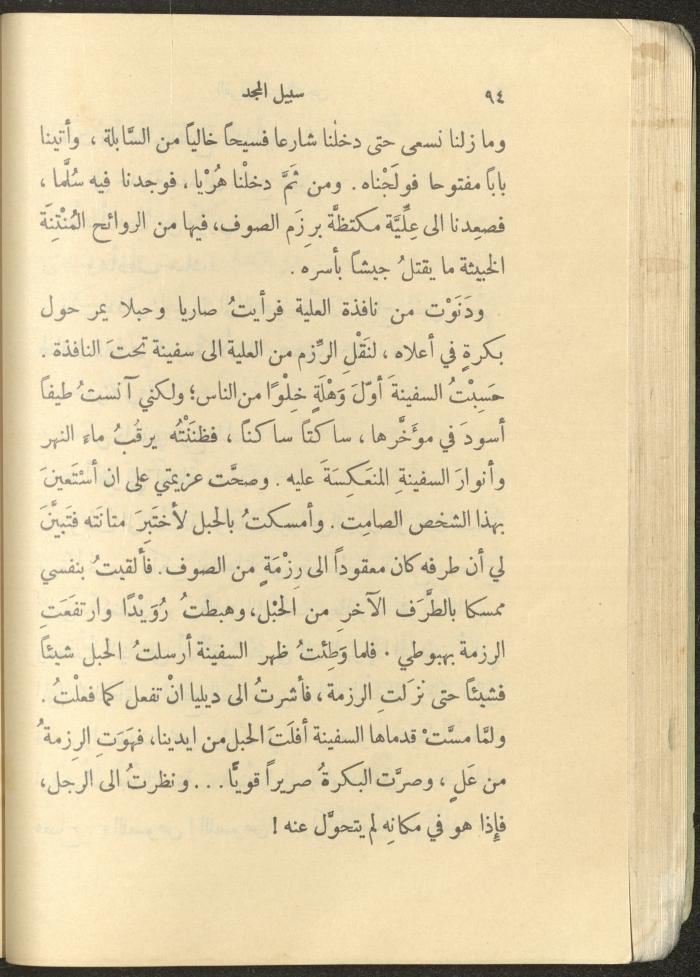 ٩٤
سبيل المجد
وما زلنا نسعى حتى دخلْنا شارعا فسيحاً خالياً من السَّابلة ، وأتينا
باباً مفتوحا فولَجْناه . ومن ثَمَّ دخلْنا هُرْيا ، فوجدنا فيه سُلَّما ،
فصعِدنا الى عِلِّيَّة مكتظَّة برِزَم الصوف، فيها من الروائح المُنْتِنَة
الخبيثة ما يقتلُ جيشاً بأسره .
ودَنَوْت من نافذة العلية فرأيتُ صاريا وحبلا يمر حول
بكرةٍ في أعلاه ، لنَقْلِ الرِّزم من العلية الى سفينة تحتَ النافذة .
حَسِبْتُ السفينةَ أوّلَ وَهْلَةٍ خِلْوًا من الناس؛ ولكني آنستُ طيفاً
أسودَ في مؤخَّرها ، ساكتاً ساكناً ، فظنَنْتُه يرقُبُ ماءَ النهر
وأنوارَ السفينةِ المنعَكِسَةَ عليه . وصحَّت عزيمتي على ان أسْتَعينَ
بهذا الشخص الصامِت . وأمسكتُ بالحبل لأختَبِرَ متانَته فتَبيَّنَ
لي أن طرفه كان معقوداً الى رِزْمَةٍ من الصوف . فألقيتُ بنفسي
ممسكا بالطَّرَف الآخرِ من الحَبْل، وهبطتُ رُوَيْدًا وارتفَعَتِ
الرزمة بهبوطي . فلما وَطِئتُ ظهر السفينة أرسلتُ الحبل شيئاً
فشيئاً حتى نزَلَت الرزمة ، فأشرتُ الى ديليا انْ تفعل كما فعلْتُ .
ولمَّا مسَّتْ قدماها السفينة أفلَتَ الحبل من ايدينا، فهَوَتِ الرزمةُ
من عَلٍ ، وصرَّت البكرةُ صريراً قويًّا . . . ونظرتُ الى الرجل،
فإِذا هو في مكانِه لم يتحوَّل عنه !